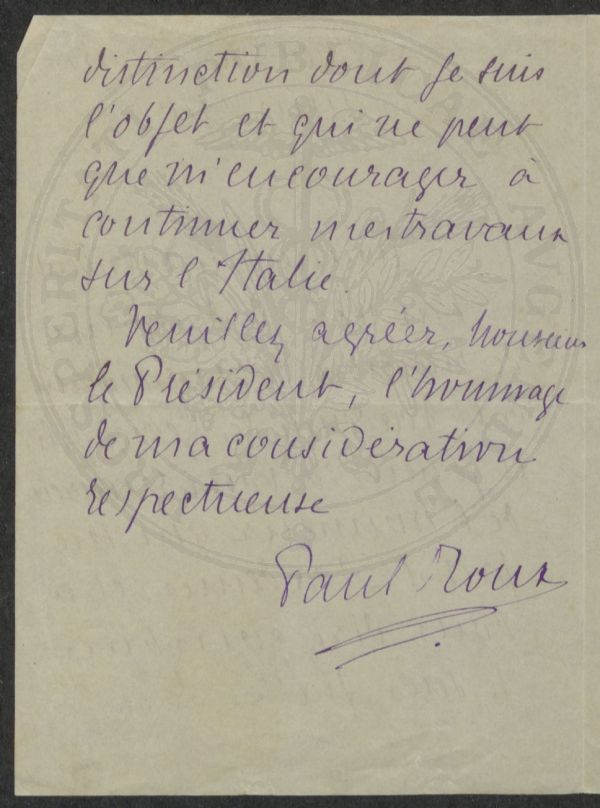 distinction dont je suis
l'objet et qui ne peut
que m'encourager à
continuer mes travaux
sur l'Italie.
Veuillez agréer, Monsieur
le Président, l'hommage
de ma considération
respectueuse
Paul Roux